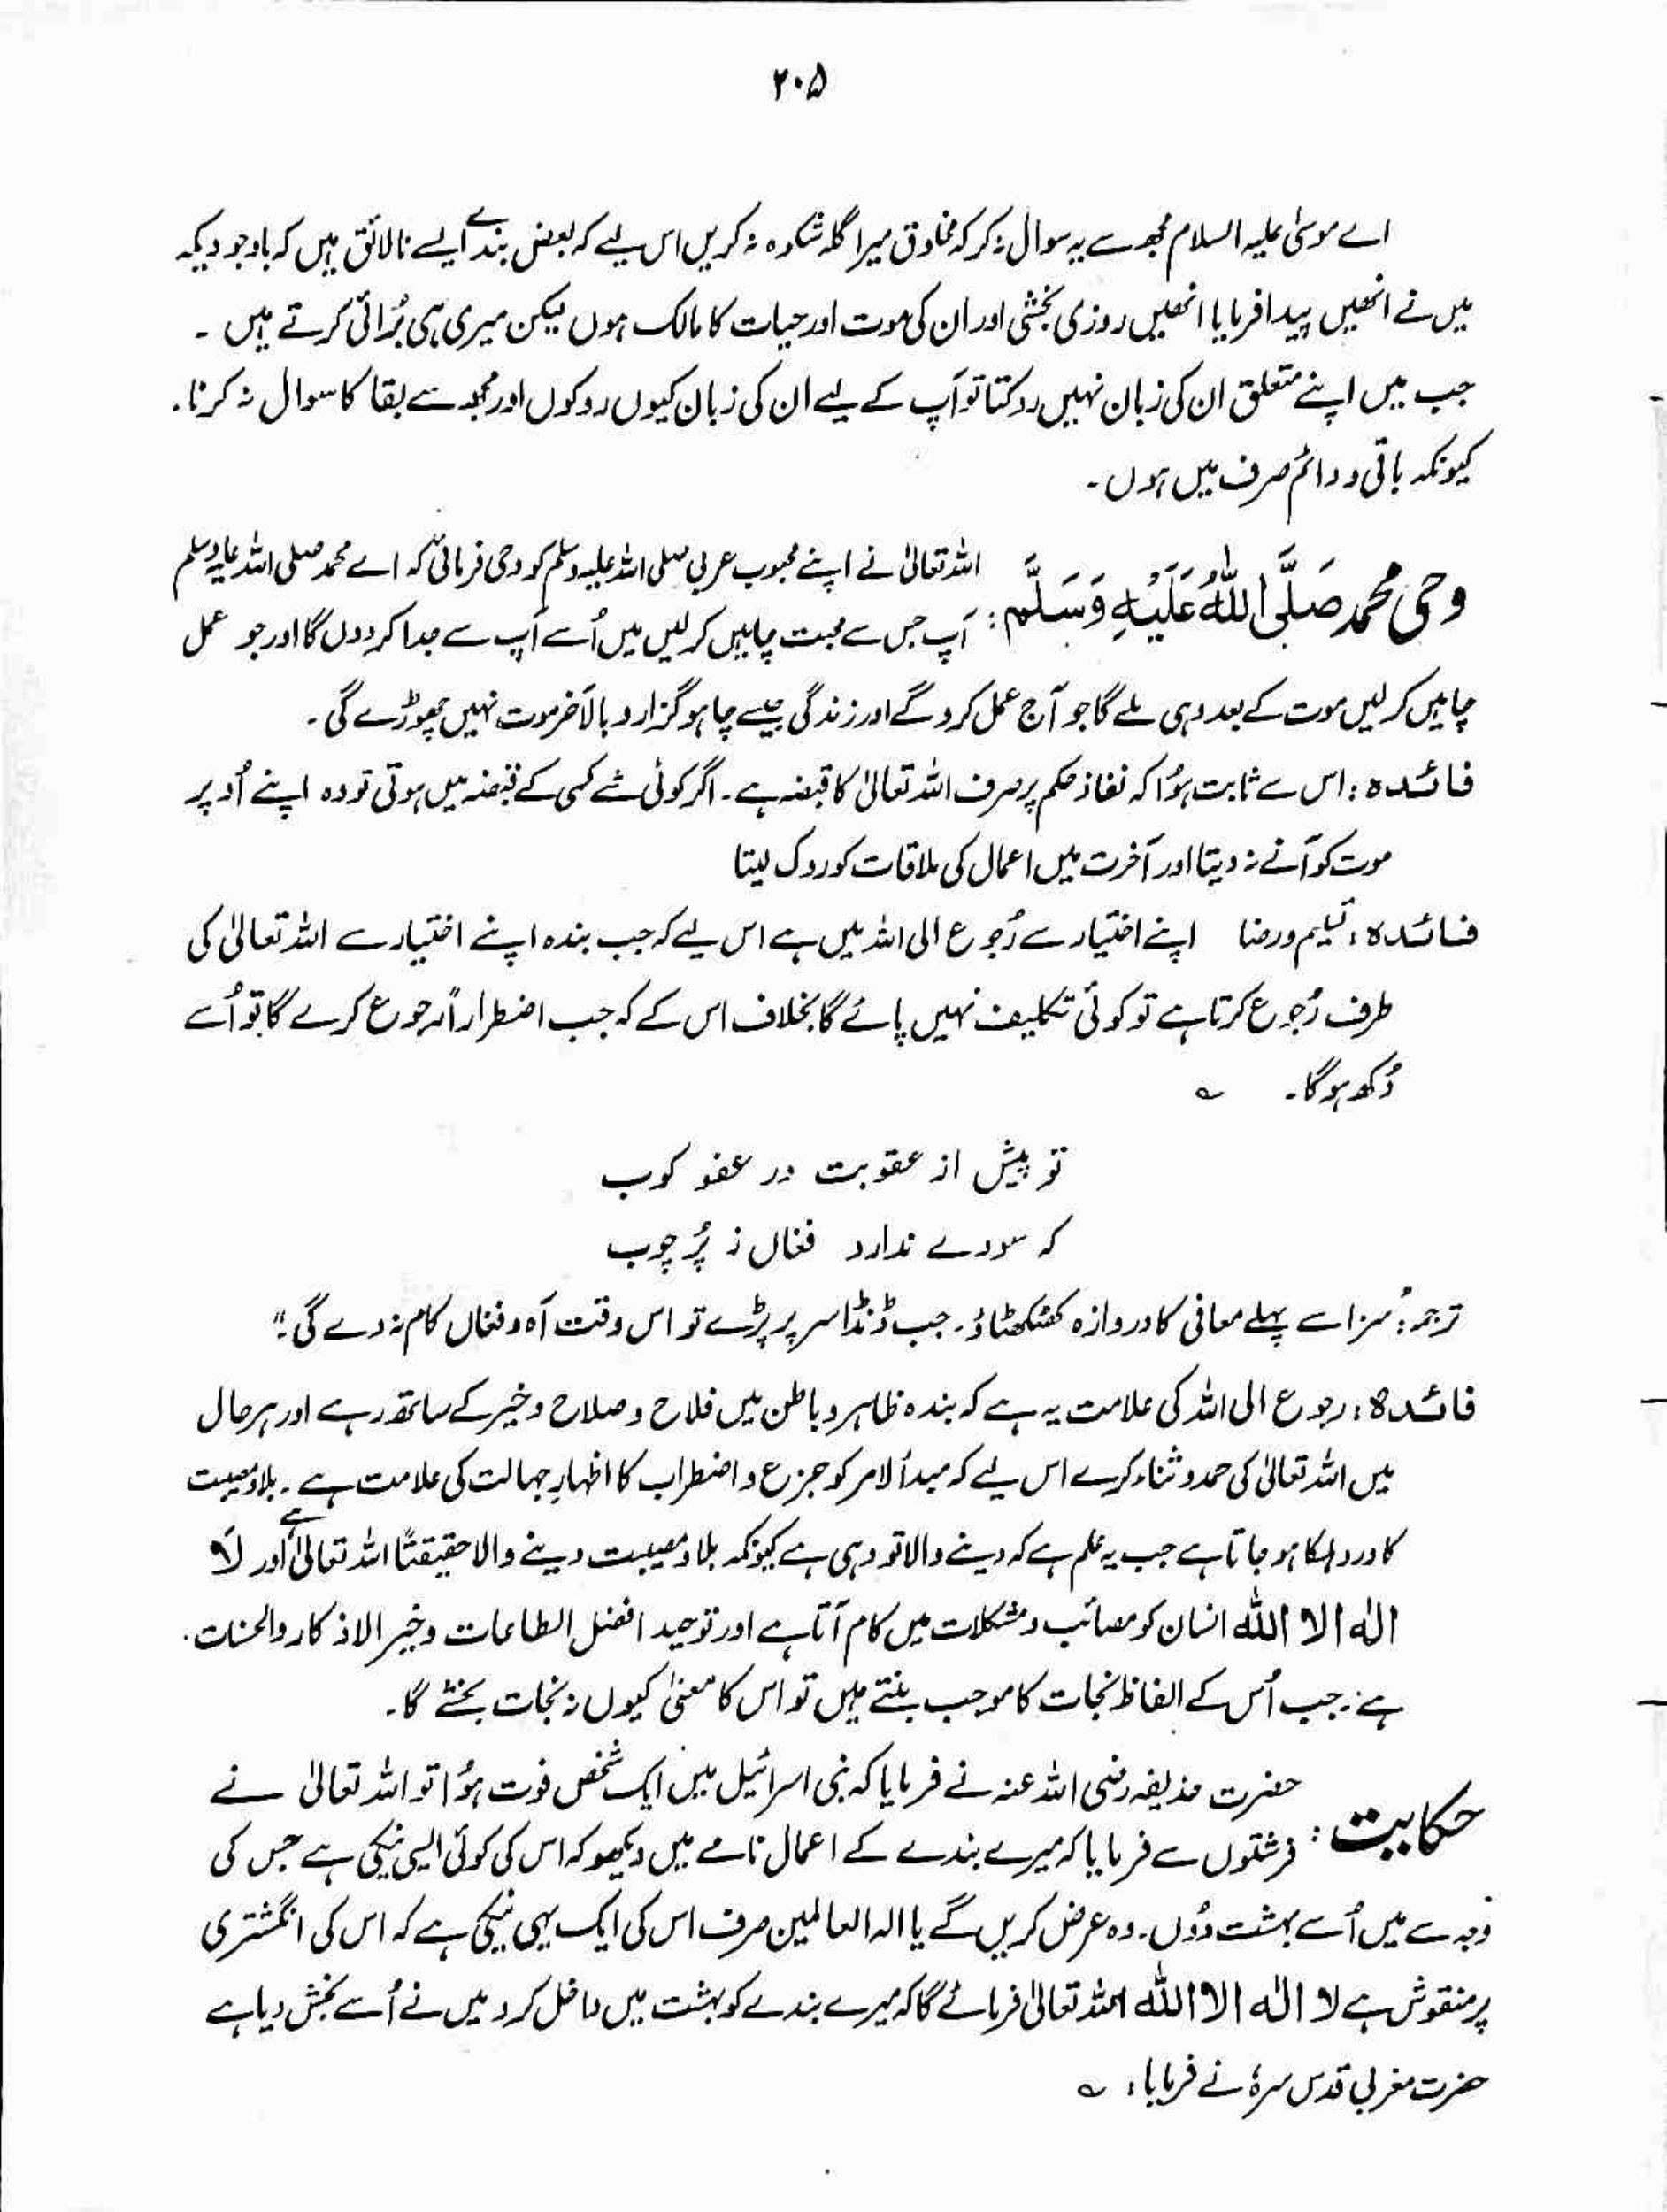 ۲۰۵
اے موسیٰ علیہ السلام مجھ سے یہ سوال نہ کر کہ مخلوق میرا گلہ شکوہ نہ کریں اس لیے کہ بعض بندے ایسے نالائق ہیں کہ باوجودیکہ
میں نے انھیں پیدا فرمایا انھیں روزی بخشی اور ان کی موت اور حیات کا مالک ہوں لیکن میری ہی بُرائی کرتے ہیں ۔
جب میں اپنے متعلق ان کی زبان نہیں روکتا تو آپ کے لیے ان کی زبان کیوں روکوں اور مجھ سے بقا کا سوال نہ کرنا۔
کیونکہ باقی و دائم صرف میں ہوں ۔
وحی محمد صَلَّی اللّٰہُ عَلَیْہِ وَسَلَّم : اللہ تعالیٰ نے اپنے محبوب عربی صلی اللہ علیہ وسلم کو وحی فرمائی کہ اے محمد صلی اللہ علیہ وسلم
آپ جس سے محبت چاہیں کر لیں میں اُسے آپ سے جدا کر دوں گا اور جو عمل
چاہیں کر لیں موت کے بعد وہی ملے گا جو آج عمل کرو گے اور زندگی جیسے چاہو گزارو بالآخر موت نہیں چھوڑے گی ۔
فائدہ : اس سے ثابت ہوُا کہ نفاذ حکم پر صرف اللہ تعالیٰ کا قبضہ ہے ۔ اگر کوئی شے کسی کے قبضہ میں ہوتی تو وہ اپنے اُوپر
موت کو آنے نہ دیتا اور آخرت میں اعمال کی ملاقات کو روک لیتا
فائدہ : تسلیم و رضا اپنے اختیار سے رُجوع الی اللہ میں ہے اس لیے کہ جب بندہ اپنے اختیار سے اللہ تعالیٰ کی
طرف رُجوع کرتا ہے تو کوئی تکلیف نہیں پائے گا بخلاف اس کے کہ جب اضطراراً رجوع کرے گا تو اُسے
دُکھ ہوگا ۔ ؎
تو پیش از عقوبت در عفو کوب
کہ سودے ندارد فغاں ز پُر چوب
ترجمہ : سزا سے پہلے معافی کا دروازہ کھٹکھٹاؤ ۔ جب ڈنڈا سر پر پڑے تو اس وقت آہ و فغاں کام نہ دے گی ۔"
فائدہ : رجوع الی اللہ کی علامت یہ ہے کہ بندہ ظاہر و باطن میں فلاح و صلاح و خیر کے ساتھ رہے اور ہر حال
میں اللہ تعالیٰ کی حمد و ثناء کرے اس لیے کہ مبدأ الامر کو جزع و اضطراب کا اظہارِ جہالت کی علامت ہے ۔ بلا و مصیبت
کا درد ہلکا ہو جاتا ہے جب یہ علم ہے کہ دینے والا تو وہی ہے کیونکہ بلا و مصیبت دینے والا حقیقتًا اللہ تعالیٰ ہے اور لَا
الٰہ الا اللّٰہ انسان کو مصائب و مشکلات میں کام آتا ہے اور توحید افضل الطاعات و خیر الاذکار والحسنات ۔
ہے ۔ جب اُس کے الفاظ نجات کا موجب بنتے ہیں تو اس کا معنیٰ کیوں نہ نجات بخشے گا ۔
حکایت : حضرت حذیفہ رضی اللہ عنہ نے فرمایا کہ بنی اسرائیل میں ایک شخص فوت ہوُا تو اللہ تعالیٰ نے
فرشتوں سے فرمایا کہ میرے بندے کے اعمال نامے میں دیکھو کہ اس کی کوئی ایسی نیکی ہے جس کی
وجہ سے میں اُسے بہشت دُوں ۔ وہ عرض کریں گے یا الہ العالمین صرف اس کی ایک یہی نیکی ہے کہ اس کی انگشتری
پر منقوش ہے لا الٰہ الا اللّٰہ اللہ تعالیٰ فرمائے گا کہ میرے بندے کو بہشت میں داخل کرو میں نے اُسے بخش دیا ہے
حضرت مغربی قدس سرہٗ نے فرمایا : ؎